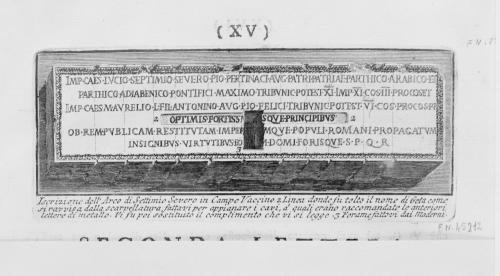 (XV)
IMP·CAES·LVCIO·SEPTIMIO·SEVERO·PIO·PERTINACI·AVG·PATRI·PATRIAE·PARTHICO·ARABICO·ET
PARTHICO·ADIABENICO·PONTIFICI·MAXIMO·TRIBVNIC·POTEST·XI·IMP·XI·COS·III·PROCOS·ET
IMP·CAES·M·AVRELIO·L·FIL·ANTONINO·AVG·PIO·FELICI·TRIBVNIC·POTEST·VI·COS·PROCOS·P·P
2 OPTIMIS·FORTISS SQVE·PRINCIPIBVS 2
OB·REM·PVBLICAM·RESTITVTAM·IMPER MQVE·POPVLI·ROMANI·PROPAGATVM
INSIGNIBVS·VIRTVTIBVS DOMI·FORISQVE·S·P·Q·R
Iscrizione dell'Arco di Settimio Severo in Campo Vaccino 2 Linea donde fu tolto il nome di Geta come
si ravvisa dalla scarpellatura fattavi per appianare i cavi, a' quali erano raccomandate le anteriori
lettere di metallo. Vi fu poi sostituito il complimento che vi si legge. 3 Forame fattovi dai Moderni
SECONDA LETTERA